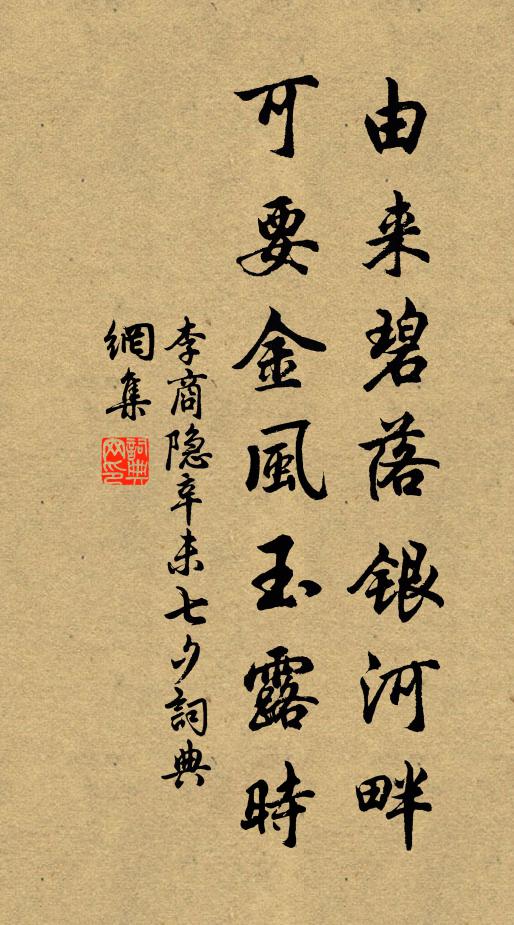 由来碧落银河畔
可要金風玉露時
李商隐辛未七夕詞典
網集
詞典網印